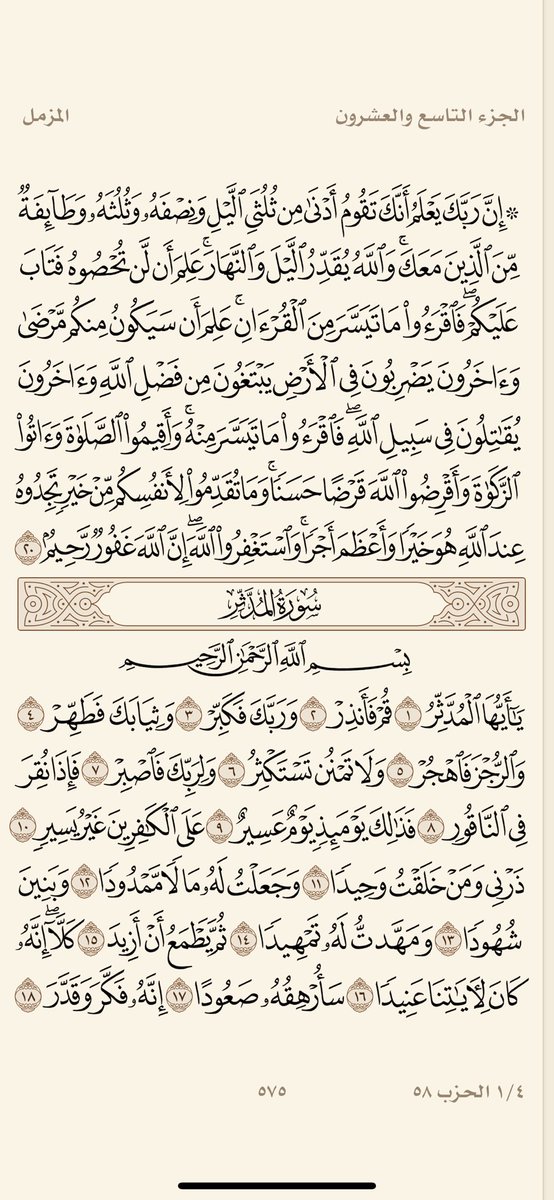 الجزء التاسع والعشرون
المزمل
۞ إِنَّ رَبَّكَ يَعْلَمُ أَنَّكَ تَقُومُ أَدْنَىٰ مِن ثُلُثَيِ ٱلَّيْلِ وَنِصْفَهُۥ وَثُلُثَهُۥ وَطَآئِفَةٌ
مِّنَ ٱلَّذِينَ مَعَكَۚ وَٱللَّهُ يُقَدِّرُ ٱلَّيْلَ وَٱلنَّهَارَۚ عَلِمَ أَن لَّن تُحْصُوهُ فَتَابَ
عَلَيْكُمْۖ فَٱقْرَءُوا۟ مَا تَيَسَّرَ مِنَ ٱلْقُرْءَانِۚ عَلِمَ أَن سَيَكُونُ مِنكُم مَّرْضَىٰ
وَءَاخَرُونَ يَضْرِبُونَ فِى ٱلْأَرْضِ يَبْتَغُونَ مِن فَضْلِ ٱللَّهِ وَءَاخَرُونَ
يُقَٰتِلُونَ فِى سَبِيلِ ٱللَّهِۖ فَٱقْرَءُوا۟ مَا تَيَسَّرَ مِنْهُۚ وَأَقِيمُوا۟ ٱلصَّلَوٰةَ وَءَاتُوا۟
ٱلزَّكَوٰةَ وَأَقْرِضُوا۟ ٱللَّهَ قَرْضًا حَسَنًاۚ وَمَا تُقَدِّمُوا۟ لِأَنفُسِكُم مِّنْ خَيْرٍ تَجِدُوهُ
عِندَ ٱللَّهِ هُوَ خَيْرًا وَأَعْظَمَ أَجْرًاۚ وَٱسْتَغْفِرُوا۟ ٱللَّهَۖ إِنَّ ٱللَّهَ غَفُورٌ رَّحِيمٌۢ ٢٠
سُورَةُ المُدَّثِّرِ
بِسْمِ ٱللَّهِ ٱلرَّحْمَٰنِ ٱلرَّحِيمِ
يَٰٓأَيُّهَا ٱلْمُدَّثِّرُ ١ قُمْ فَأَنذِرْ ٢ وَرَبَّكَ فَكَبِّرْ ٣ وَثِيَابَكَ فَطَهِّرْ ٤
وَٱلرُّجْزَ فَٱهْجُرْ ٥ وَلَا تَمْنُن تَسْتَكْثِرُ ٦ وَلِرَبِّكَ فَٱصْبِرْ ٧ فَإِذَا نُقِرَ
فِى ٱلنَّاقُورِ ٨ فَذَٰلِكَ يَوْمَئِذٍ يَوْمٌ عَسِيرٌ ٩ عَلَى ٱلْكَٰفِرِينَ غَيْرُ يَسِيرٍ ١٠
ذَرْنِى وَمَنْ خَلَقْتُ وَحِيدًا ١١ وَجَعَلْتُ لَهُۥ مَالًا مَّمْدُودًا ١٢ وَبَنِينَ
شُهُودًا ١٣ وَمَهَّدتُّ لَهُۥ تَمْهِيدًا ١٤ ثُمَّ يَطْمَعُ أَنْ أَزِيدَ ١٥ كَلَّآۖ إِنَّهُۥ
كَانَ لِءَايَٰتِنَا عَنِيدًا ١٦ سَأُرْهِقُهُۥ صَعُودًا ١٧ إِنَّهُۥ فَكَّرَ وَقَدَّرَ ١٨
١/٤ الحزب ٥٨
٥٧٥